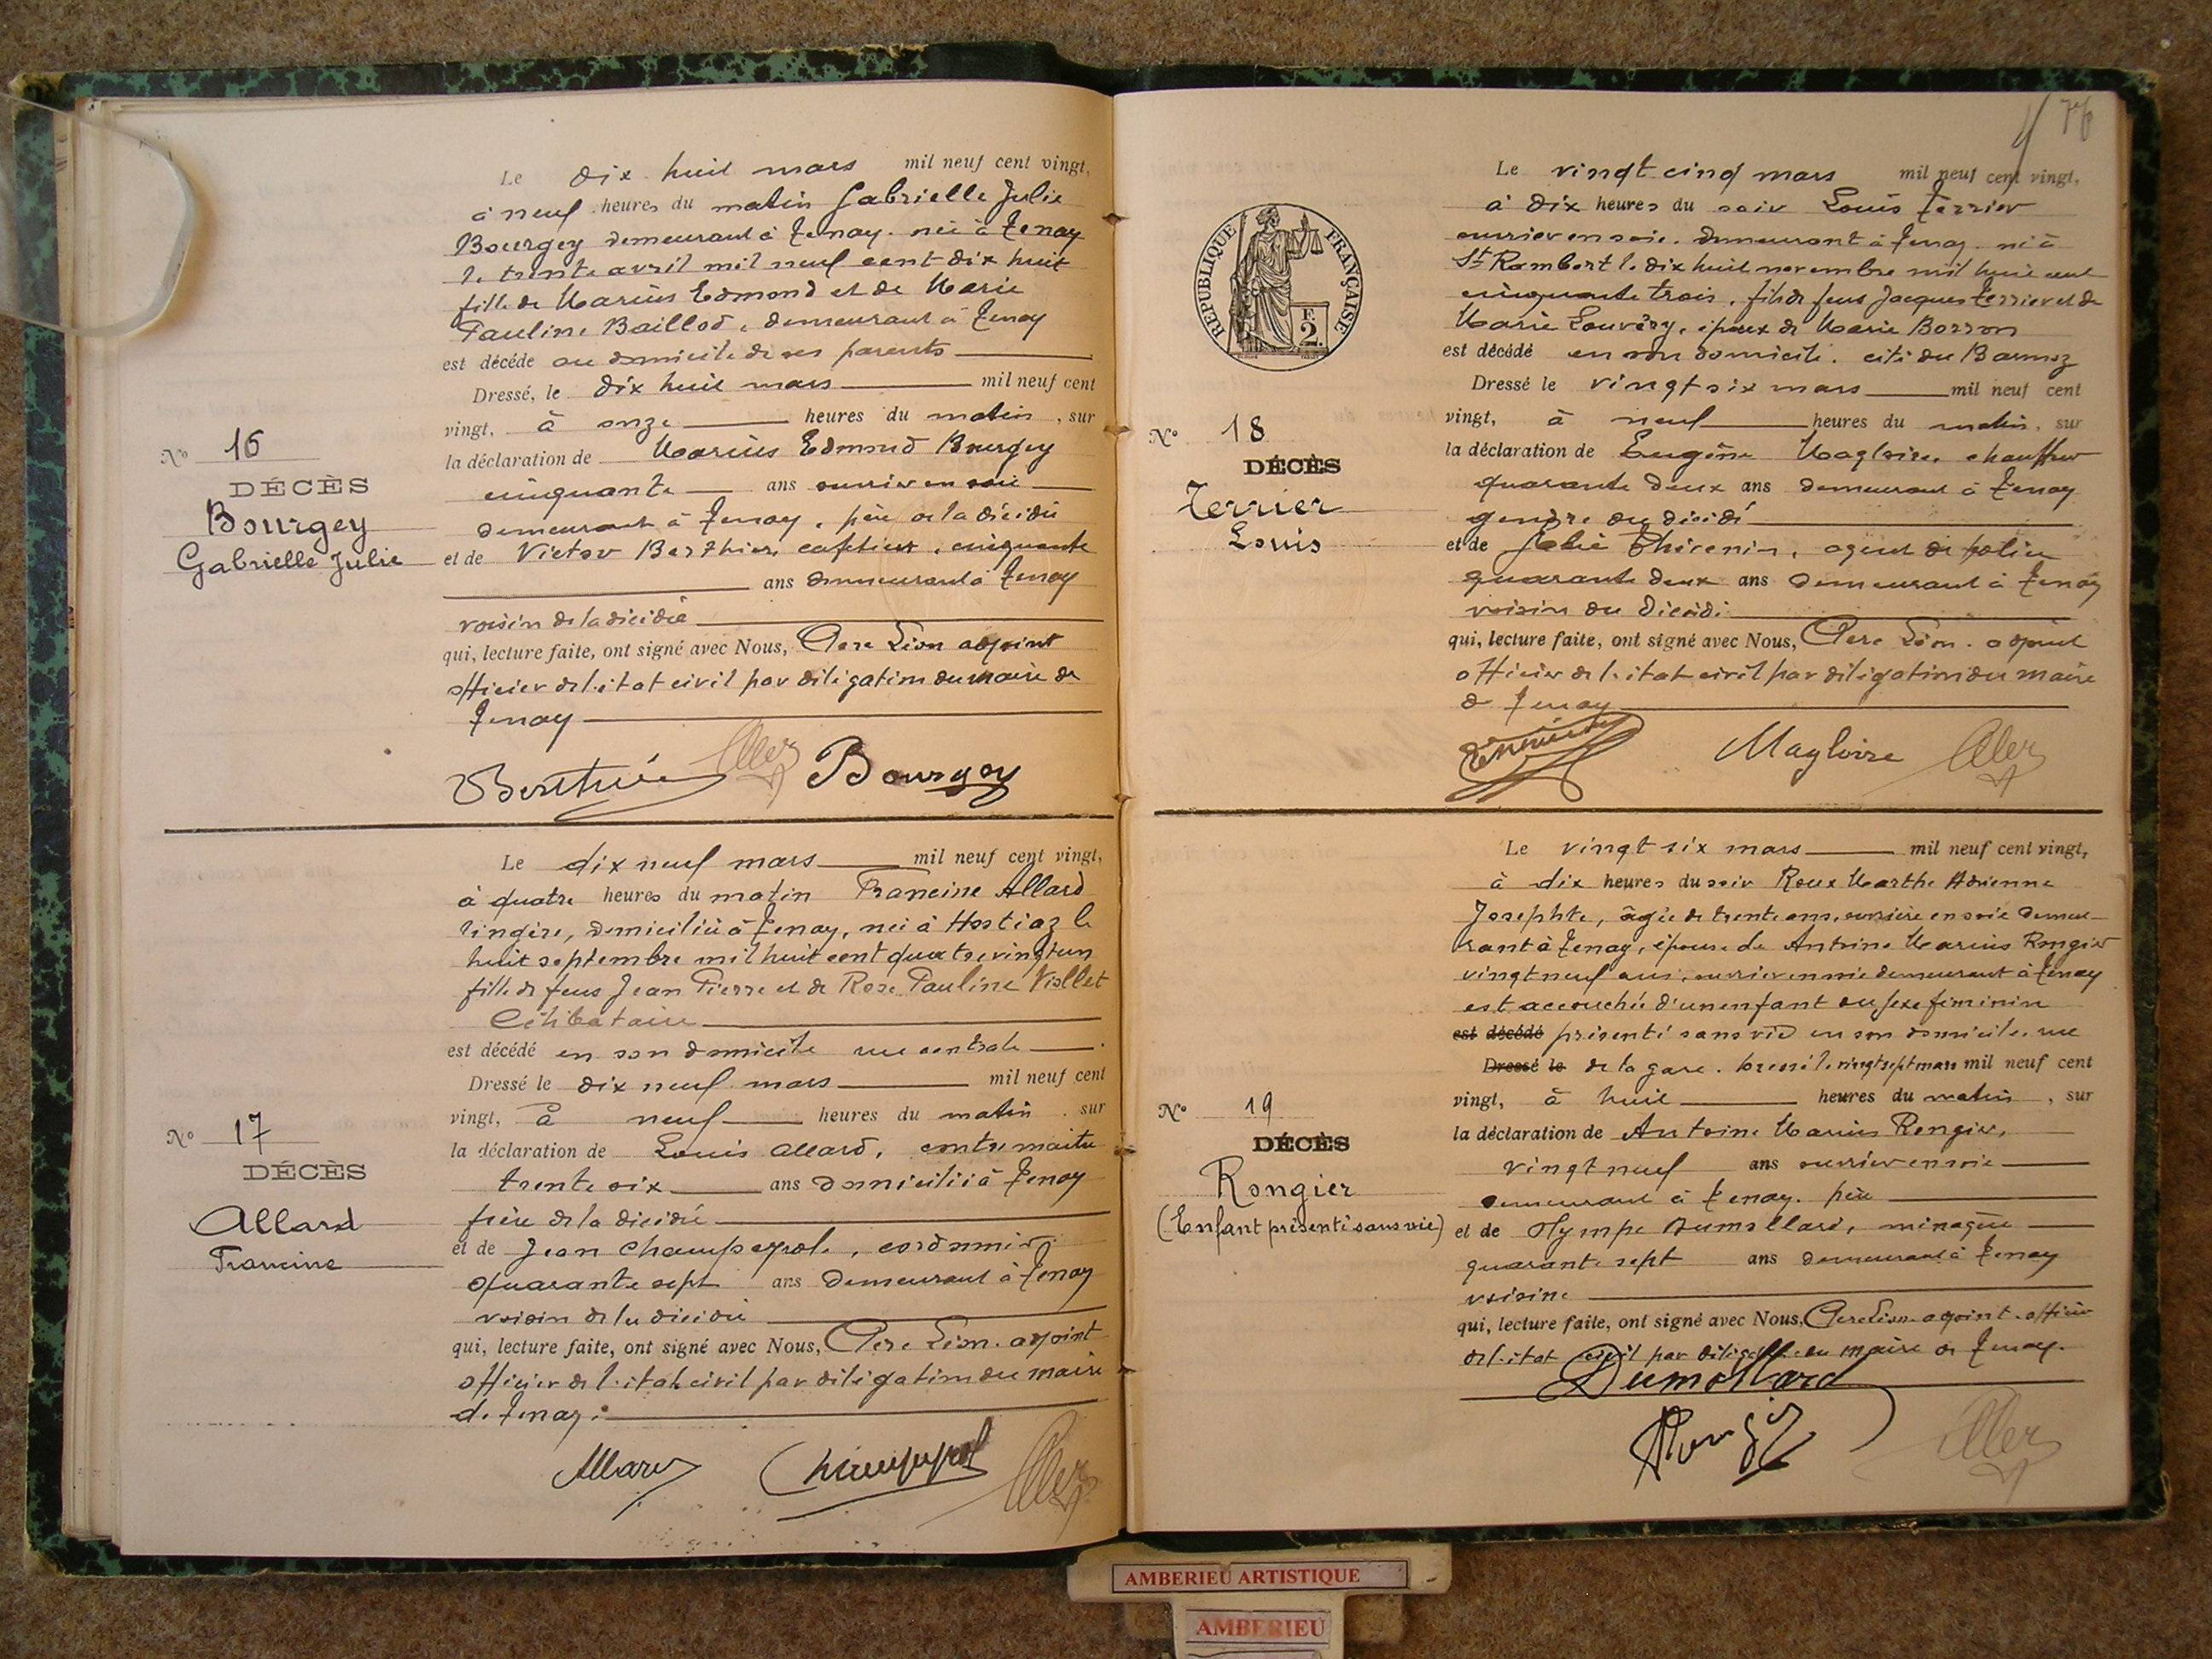 Le dix huit mars mil neuf cent vingt,
à neuf heures du matin Gabrielle Julie
Bourgey demeurant à Tenay. née à Tenay
le trente avril mil neuf cent dix huit
fille de Marius Edmond et de Marie
Pauline Baillod, demeurant à Tenay
est décédé au domicile de ses parents
Dressé, le dix huit mars mil neuf cent
vingt, à onze heures du matin, sur
la déclaration de Marius Edmond Bourgey
cinquante ans ouvrier en soie
demeurant à Tenay, père de la décédée
et de Victor Berthier, cafetier, cinquante
ans demeurant à Tenay
voisin de la décédée
qui, lecture faite, ont signé avec Nous, Léon adjoint
officier de l'état civil par délégation du maire de
Tenay
Nº 16
DÉCÈS
Bourgey
Gabrielle Julie
Berthier Bourgey
Le dix neuf mars mil neuf cent vingt,
à quatre heures du matin Francine Allard
lingère, domiciliée à Tenay, née à Hostiaz le
huit septembre mil huit cent quatre vingt un
fille de feus Jean Pierre et de Rose Pauline Viollet
Célibataire
est décédé en son domicile rue centrale
Dressé le dix neuf mars mil neuf cent
vingt, à neuf heures du matin, sur
la déclaration de Louis Allard, contremaitre
trente six ans domicilié à Tenay
frère de la décédée
et de Jean Champeyrol, cordonnier
quarante sept ans demeurant à Tenay
voisin de la décédée
qui, lecture faite, ont signé avec Nous, Léon. adjoint
officier de l'état civil par délégation du maire
de Tenay.
Nº 17
DÉCÈS
Allard
Francine
Allard Champeyrol
76
RÉPUBLIQUE FRANÇAISE
F.
2.
Le vingt cinq mars mil neuf cent vingt,
à dix heures du soir Louis Terrier
ouvrier en soie. demeurant à Tenay. né à
St Rambert le dix huit novembre mil huit cent
cinquante trois, fils de feus Jacques Terrier et de
Marie Louvéry, époux de Marie Borron
est décédé en son domicile. cité du
Dressé le vingt six mars mil neuf cent
vingt, à neuf heures du matin, sur
la déclaration de Eugène Magloire, chauffeur
quarante deux ans demeurant à Tenay
gendre du décédé
et de Thévenin, agent de police
quarante deux ans demeurant à Tenay
voisin du décédé.
qui, lecture faite, ont signé avec Nous, Léon. adjoint
officier de l'état civil par délégation du maire
de Tenay
Nº 18
DÉCÈS
Terrier
Louis
Thévenin Magloire
Le vingt six mars mil neuf cent vingt,
à dix heures du soir Roux Marthe Adrienne
Josephte, âgée de trente ans, ouvrière en soie demeu-
rant à Tenay, épouse de Antoine Marius Rongier
vingt neuf ans, ouvrier en soie demeurant à Tenay
est accouchée d'un enfant du sexe féminin
est décédé présenté sans vie en son domicile, rue
Dressé le de la gare. Dressé le vingt sept mars mil neuf cent
vingt, à huit heures du matin, sur
la déclaration de Antoine Marius Rongier,
vingt neuf ans ouvrier en soie
demeurant à Tenay. père
et de Olympe Dumollard, ménagère
quarante sept ans demeurant à Tenay
voisine
qui, lecture faite, ont signé avec Nous, Léon adjoint. officier
de l'état civil par délégation du maire de Tenay.
Nº 19
DÉCÈS
Rongier
(Enfant présenté sans vie)
Dumollard
Rongier
AMBERIEU ARTISTIQUE
AMBERIEU